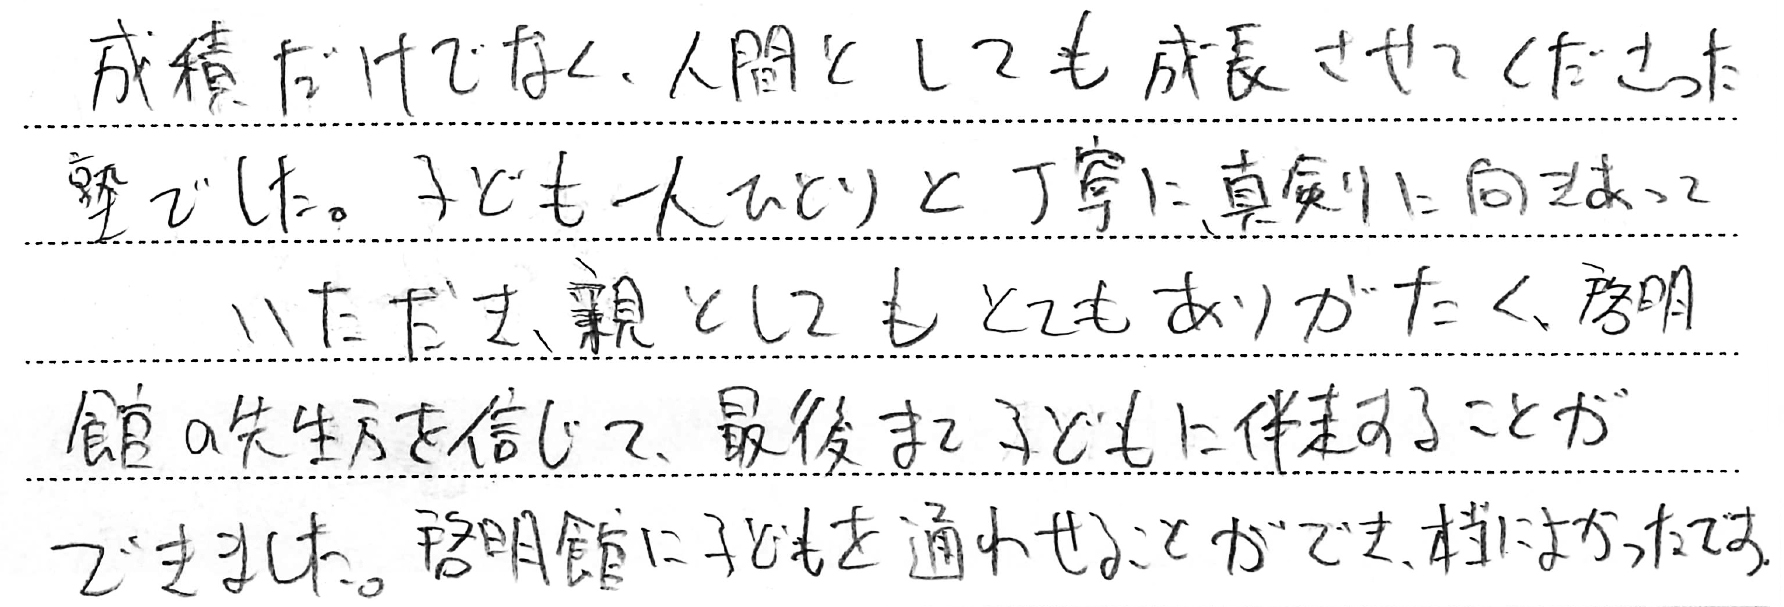 成積だけでなく、人間としても成長させてくださった
塾でした。子ども一人ひとりと丁寧に、真剣に向きあって
いただき、親としてもとてもありがたく、啓明
館の先生方を信じて、最後まで子どもに伴走することが
できました。啓明館に子どもを通わせることができ、本当によかったです。